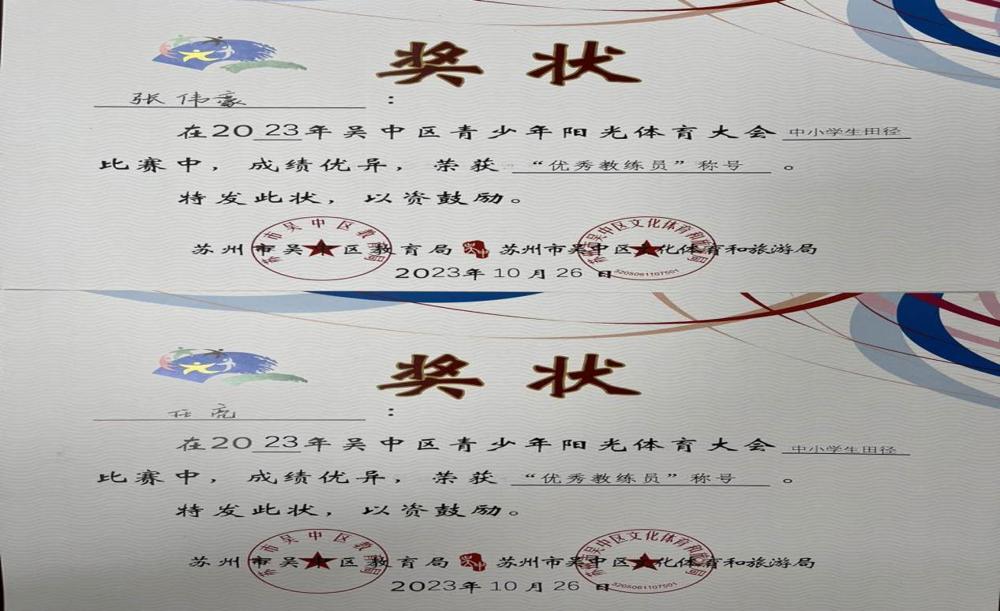 奖 状
张伟豪：
在2023年吴中区青少年阳光体育大会中小学生田径
比赛中，成绩优异，荣获“优秀教练员”称号。
特发此状，以资鼓励。
苏州市吴中区教育局 苏州市吴中区文化体育和旅游局
2023年10月26日
奖 状
任亮：
在2023年吴中区青少年阳光体育大会中小学生田径
比赛中，成绩优异，荣获“优秀教练员”称号。
特发此状，以资鼓励。
苏州市吴中区教育局 苏州市吴中区文化体育和旅游局
2023年10月26日